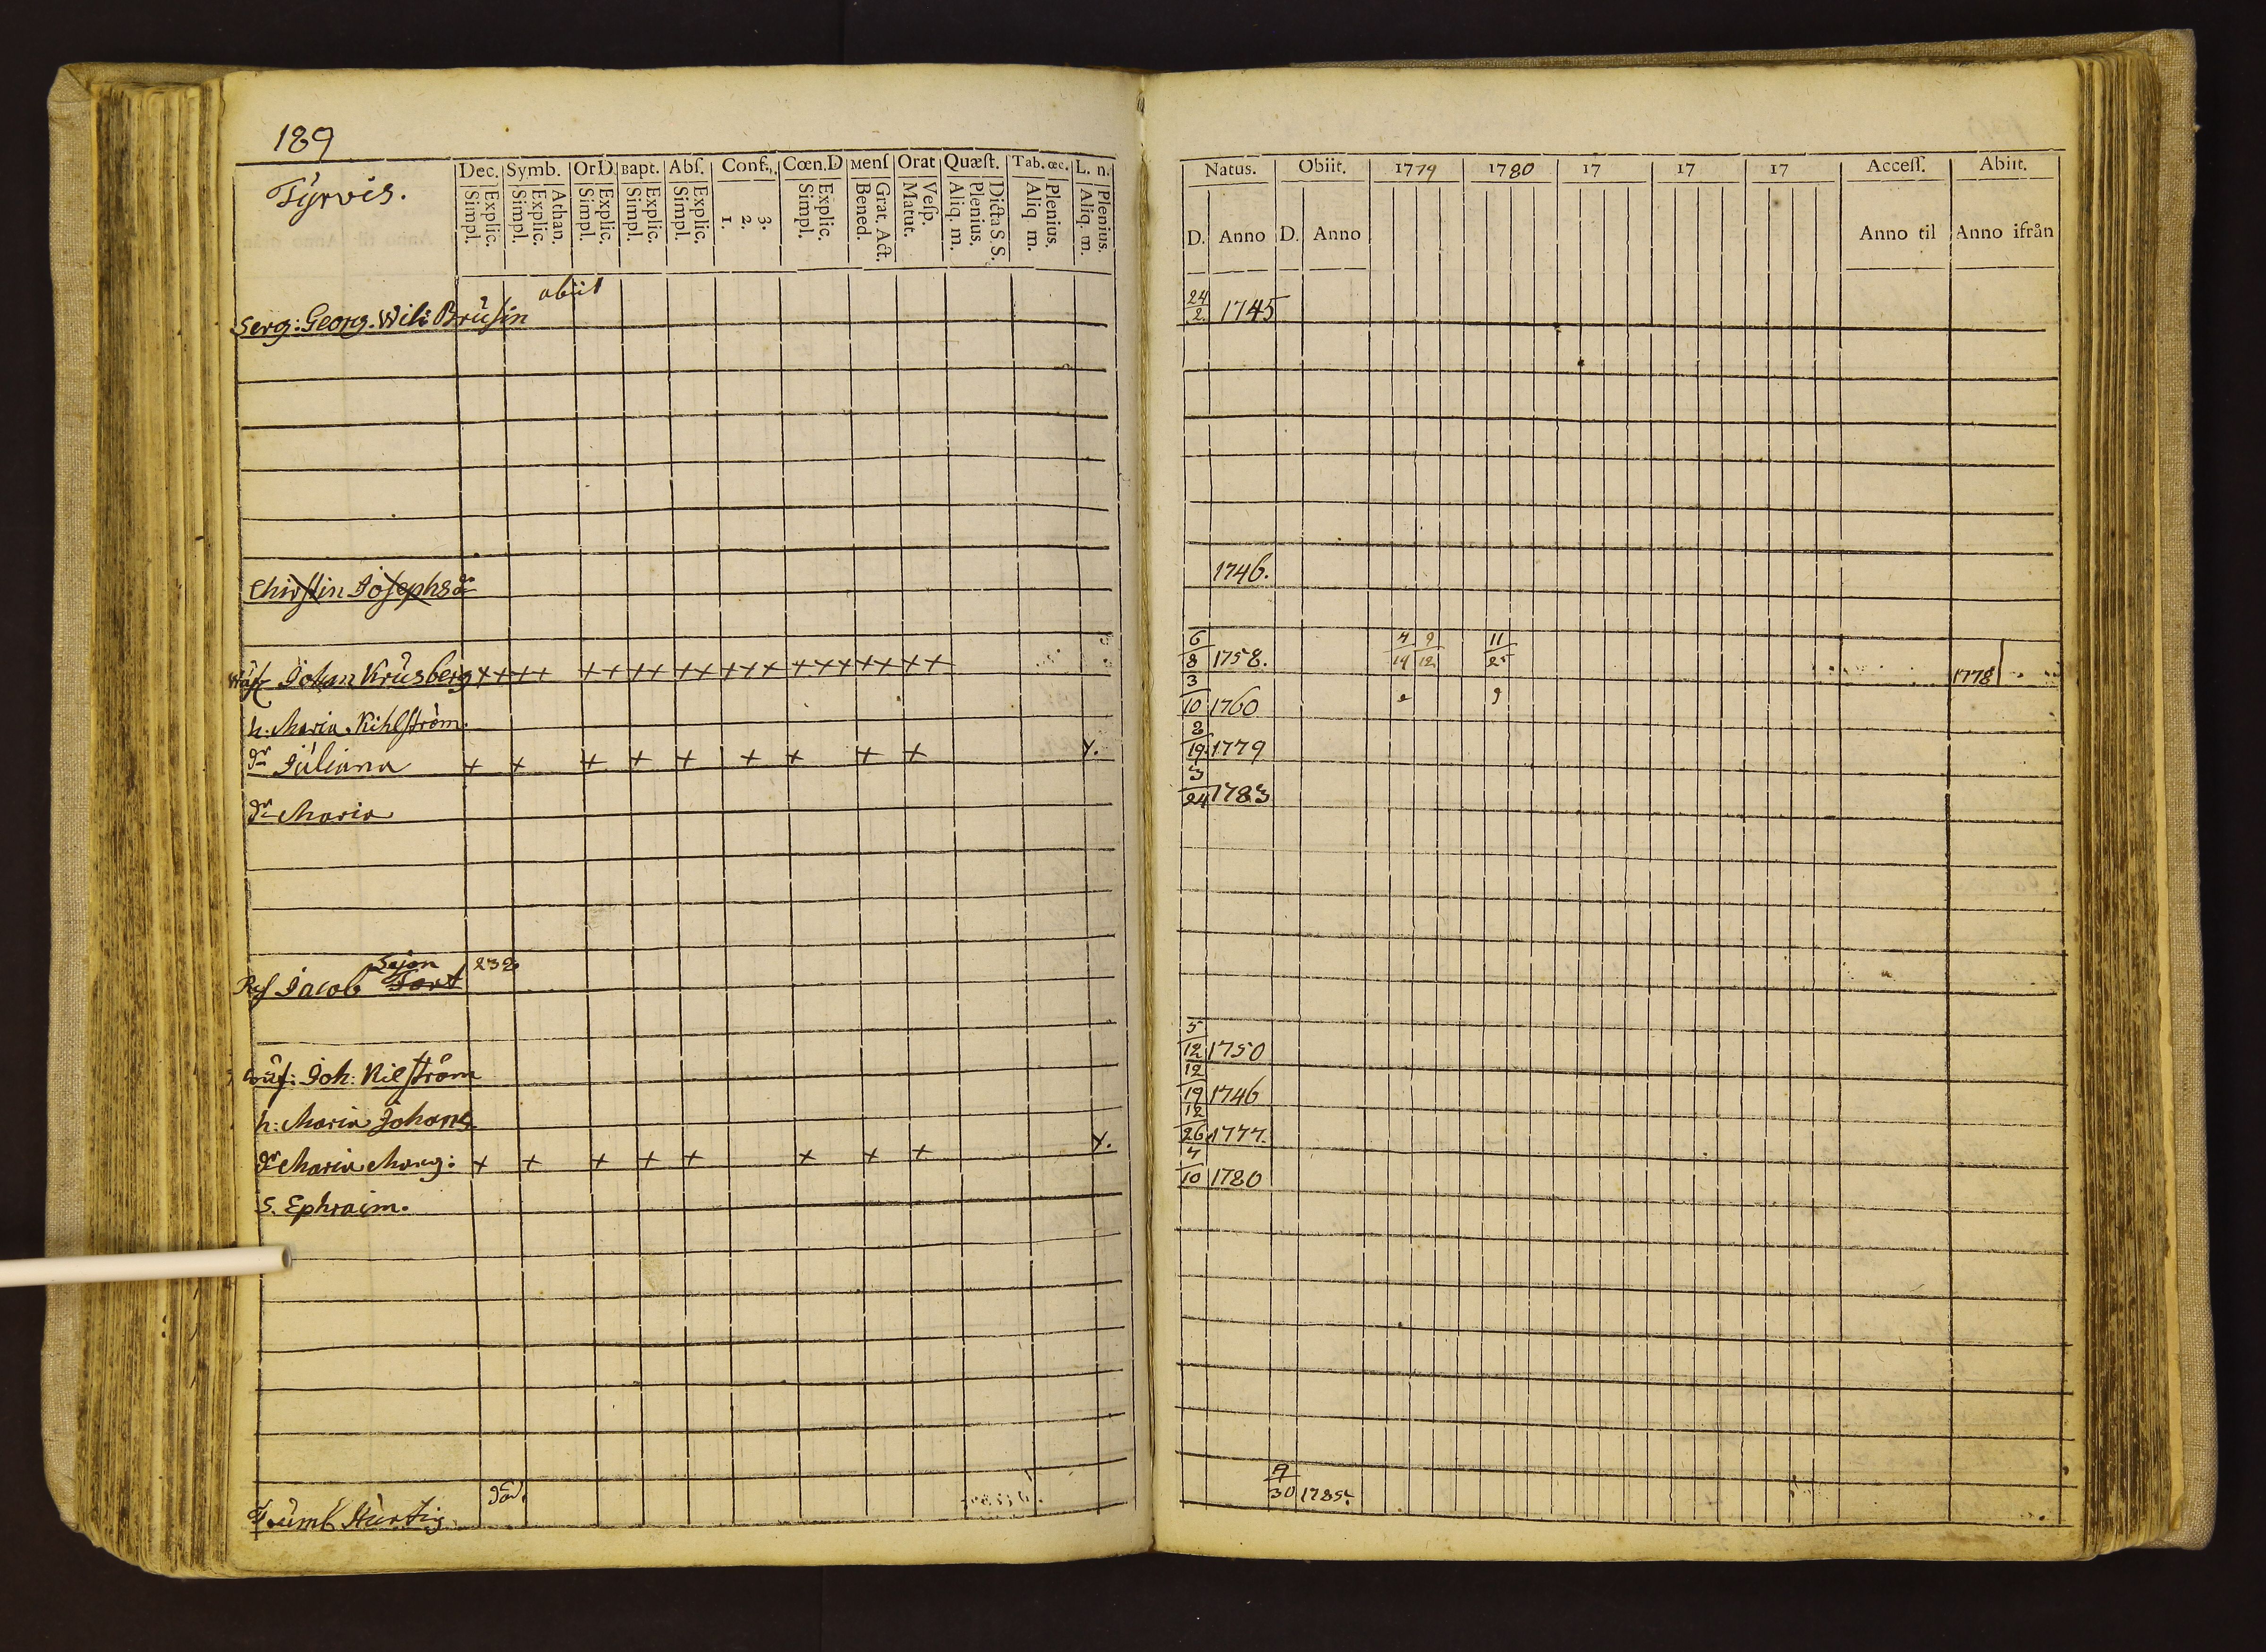 189
Tyrvis.
Dec. Symb. Or D. Bapt. Abſ. Conf. Cœn. D Menſ Orat Quæſt. Tab. œc. L. n.
Explic. Simpl. Athan. Explic. Simpl. Explic. Simpl. Explic. Simpl. Explic. Simpl. 3. 2. 1. Explic. Simpl. Grat. Act. Bened. Veſp. Matut. Dicta S. S. Plenius. Aliq. m. Plenius. Aliq. m. Plenius. Aliq. m.
Natus. Obiit. 1779 1780 17 17 17 Acceſſ. Abiit.
D. Anno D. Anno Anno til Anno ifrån
abiit
Serg: Georg. Wilh: Brusin 24/2. 1745
Chirstin Josephsdr 1746.
Johan Krusberg ++++ ++++ ++ +++ +++ ++ ++ 6/8 1758. 4/14 9/12 11/25 1778
h: Maria Kihlström. 3/10 1760
dr Juliana + + + + + + + + + y. 2/19. 1779
dr Maria 3/24 1783
Sejon 232.
Jacob Tort
Joh: Kilström 5/12 1750
h: Maria Johans 12/19 1746
dr Maria Marg: + + + + + + + + y. 12/26. 1777.
S. Ephraim. 4/10 1780
död.
Trumb Hurtig. 9/30 1785.